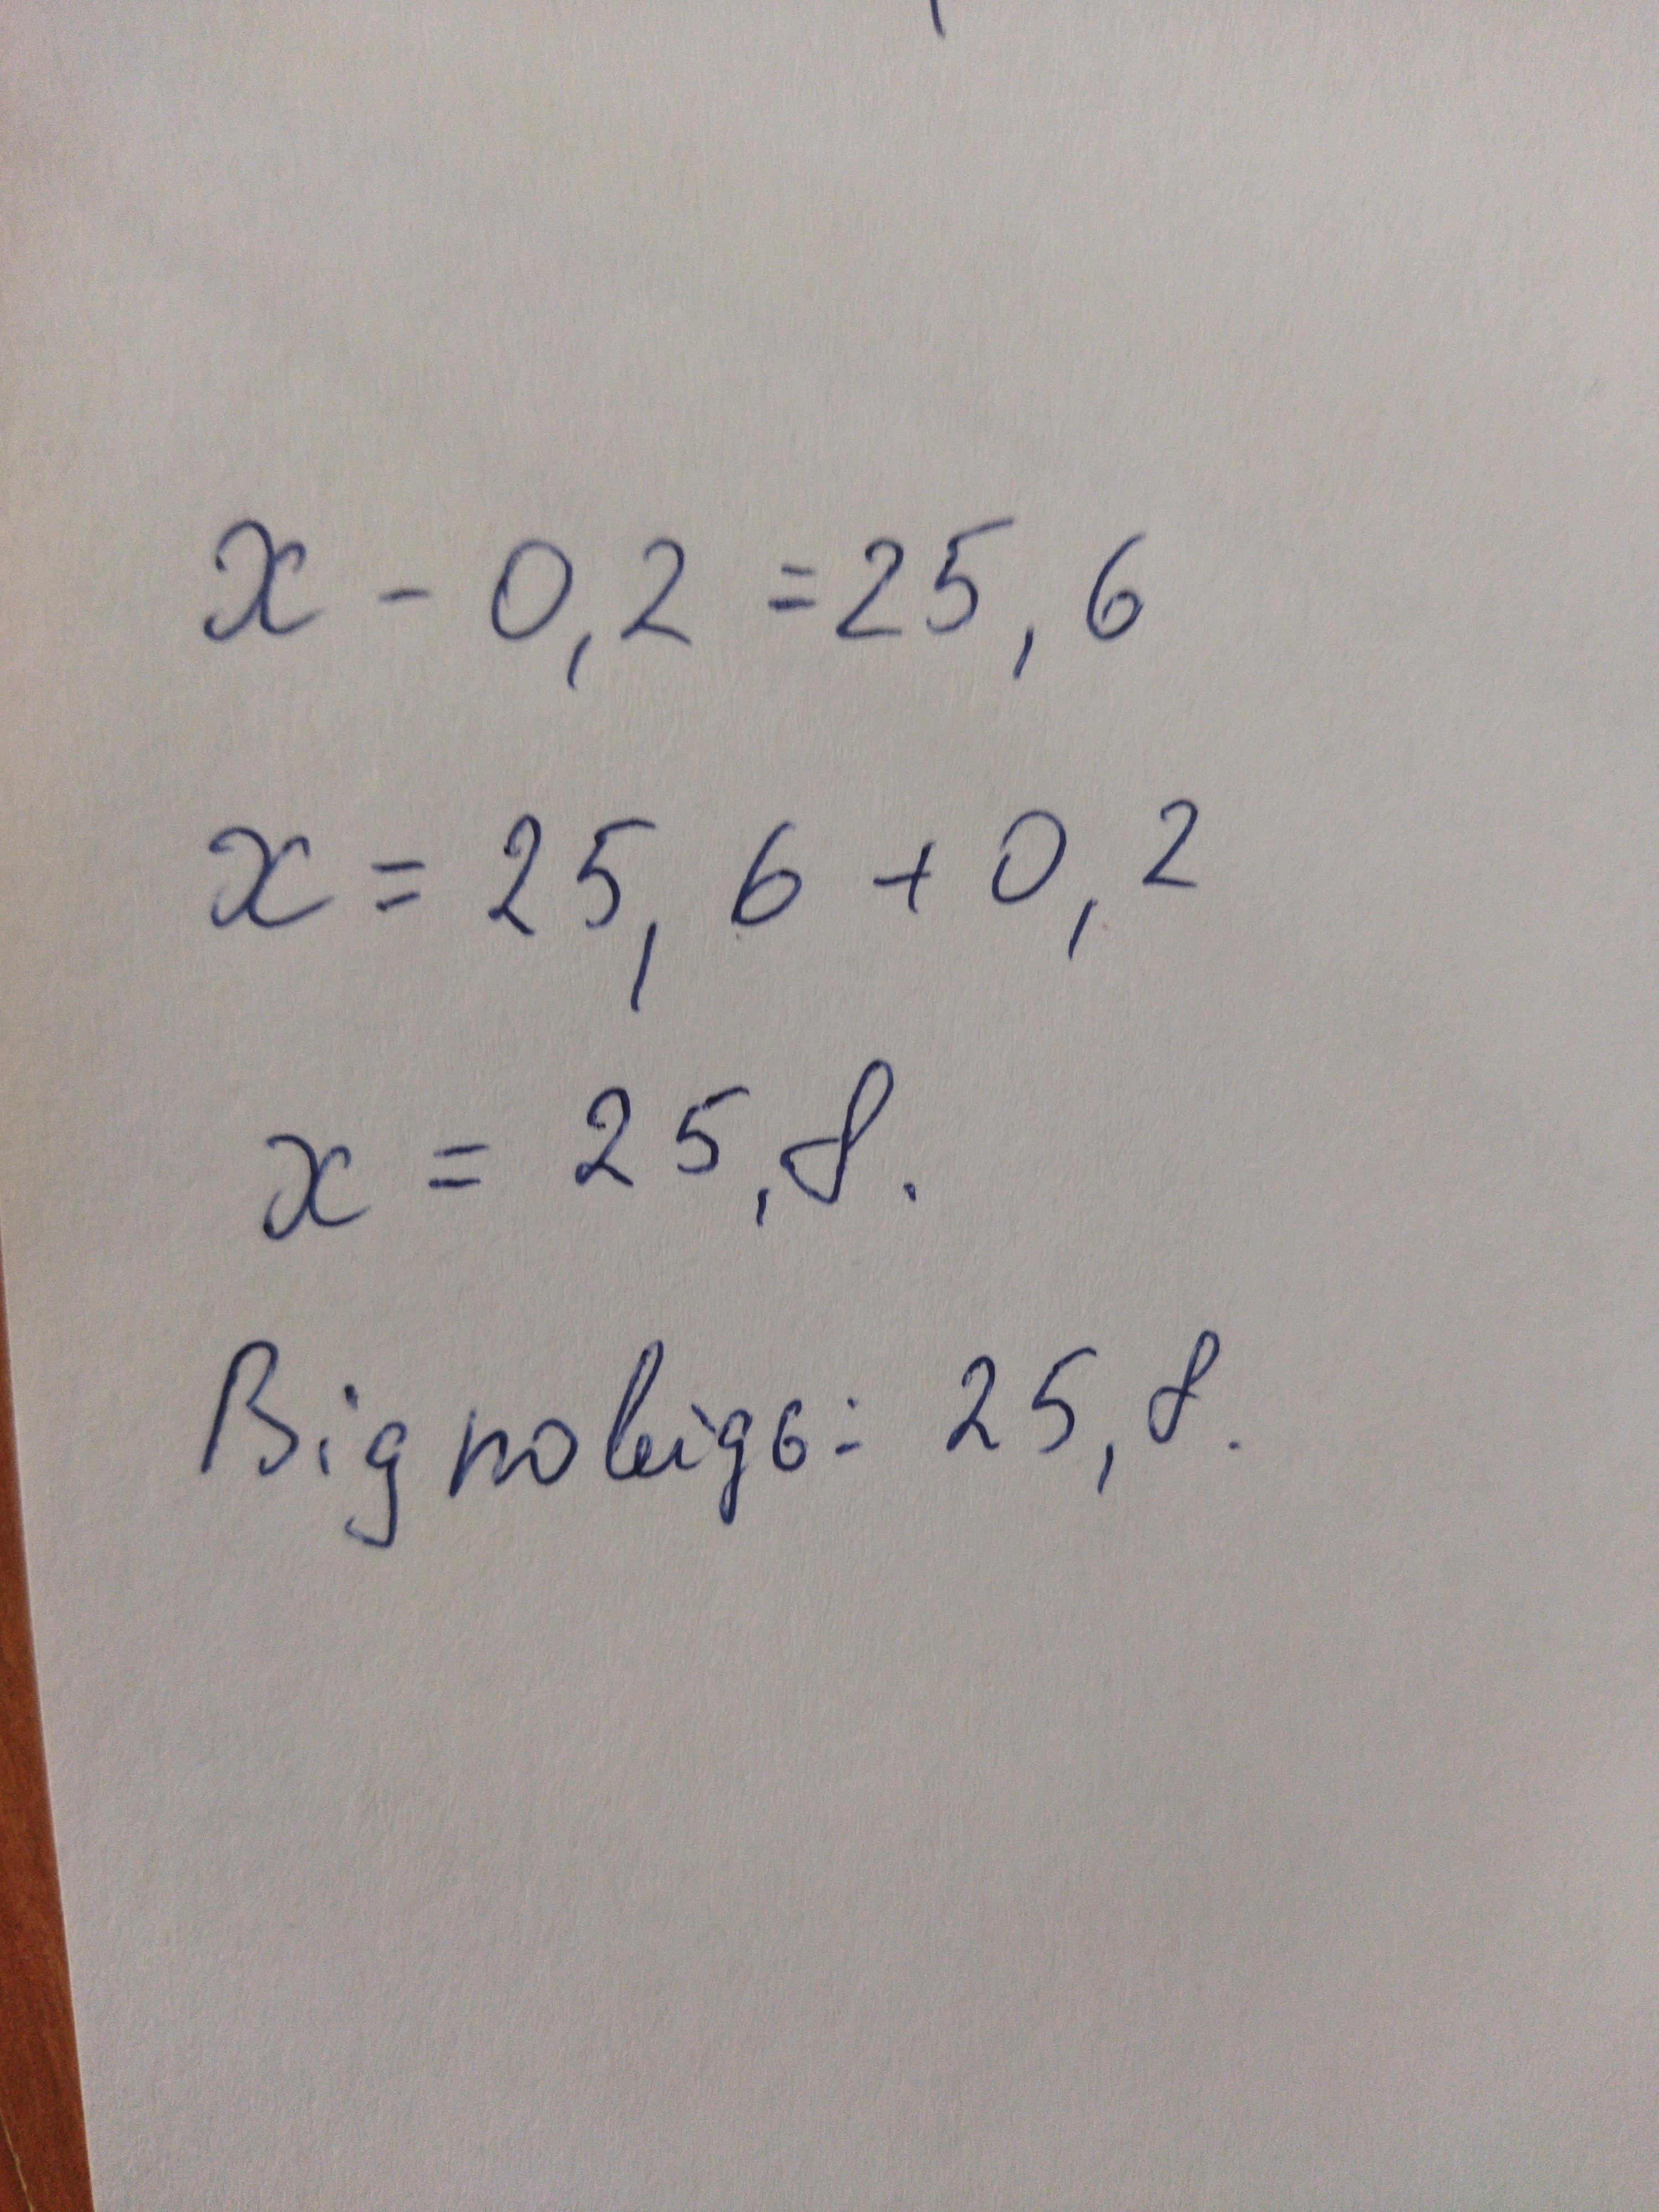 x - 0,2 = 25,6
x = 25,6 + 0,2
x = 25,8.
Відповідь: 25,8.